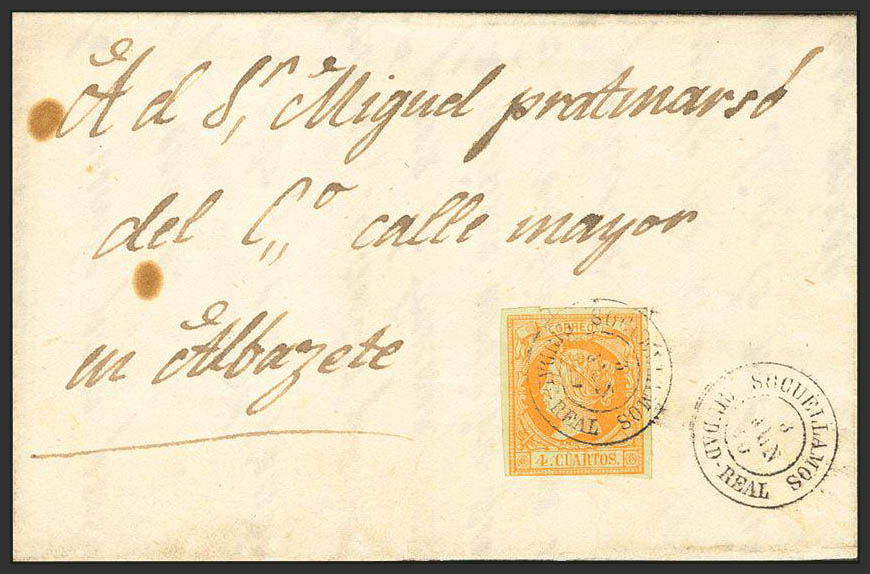 A el S.r Miguel pratinarsó
del C,,o calle mayor
en Albazete
CORREOS
4. CUARTOS.
SOCUELLAMOS
CIUDAD-REAL
SOCUELLAMOS
8
JUN
CIUDAD-REAL